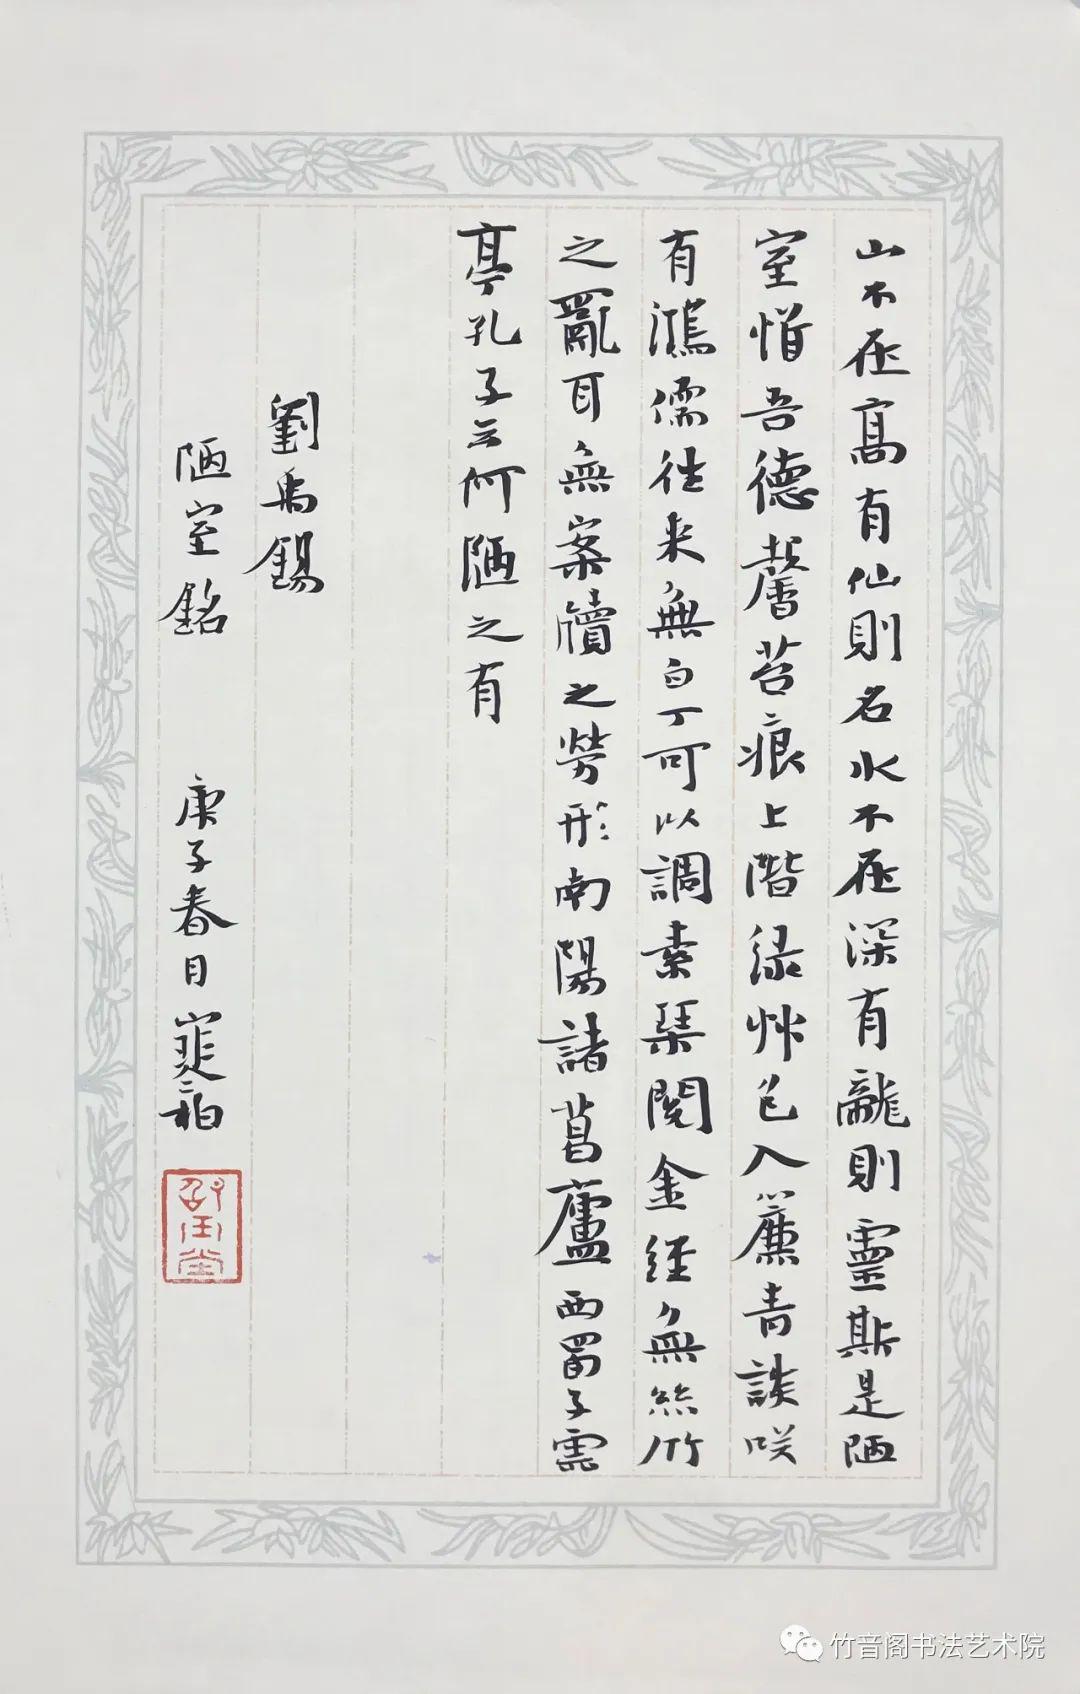 山不在高有仙則名水不在深有龍則靈斯是陋
室惟吾德馨苔痕上階緑艸色入簾青談咲
有鴻儒往来無白丁可以調素琴閱金經無絲竹
之亂耳無案牘之勞形南陽諸葛廬西蜀子雲
亭孔子云何陋之有
劉禹錫
陋室銘 庚子春日
竹音阁书法艺术院